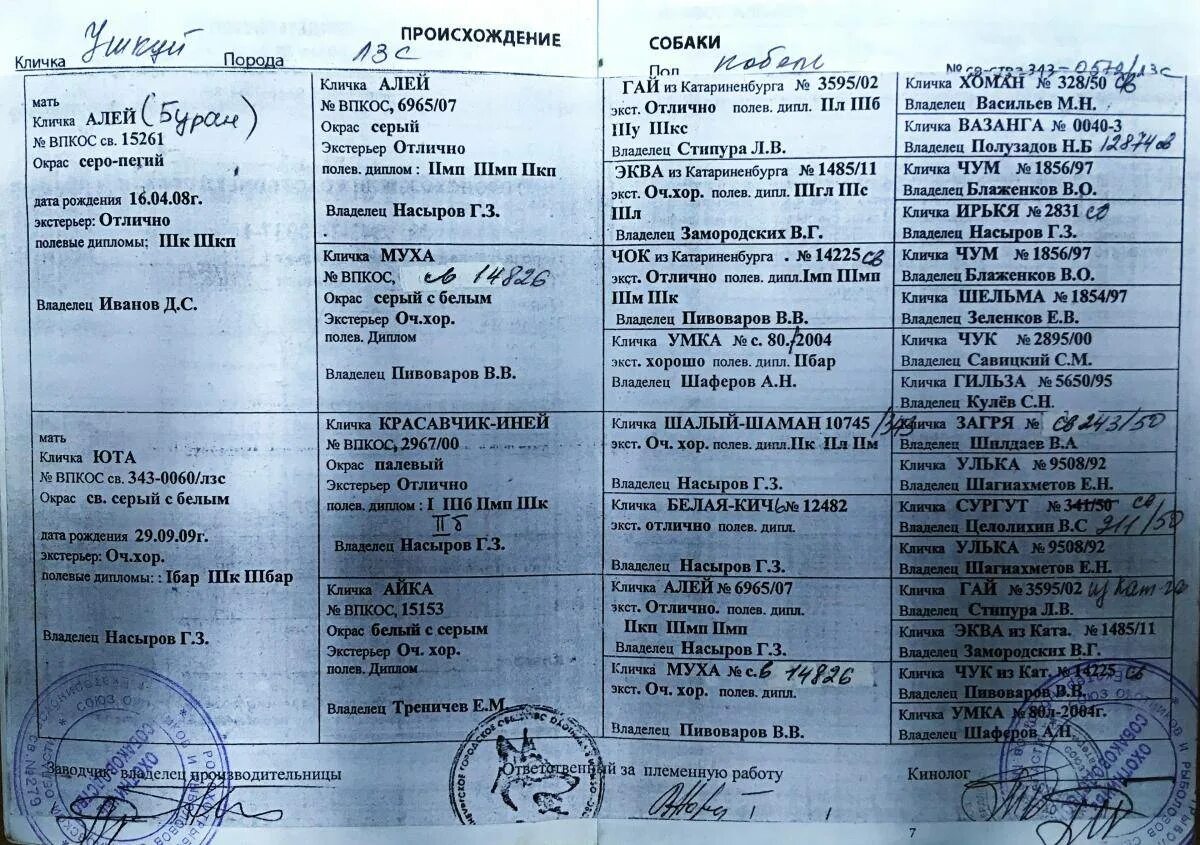 ПРОИСХОЖДЕНИЕ СОБАКИ
Кличка Ушкуй Порода ЛЗС Пол кобель № св-ство 343-0570/лзс
мать
Кличка АЛЕЙ (Буран)
№ ВПКОС св. 15261
Окрас серо-пегий
дата рождения 16.04.08г.
экстерьер: Отлично
полевые дипломы; IIIк IIIкп
Владелец Иванов Д.С.
мать
Кличка ЮТА
№ ВПКОС св. 343-0060/лзс
Окрас св. серый с белым
дата рождения 29.09.09г.
экстерьер: Оч.хор.
полевые дипломы: : Iбар IIIк IIIбар
Владелец Насыров Г.З.
Кличка АЛЕЙ
№ ВПКОС, 6965/07
Окрас серый
Экстерьер Отлично
полев. диплом : IIмп IIIмп IIкп
Владелец Насыров Г.З.
Кличка МУХА
№ ВПКОС, св 14826
Окрас серый с белым
Экстерьер Оч.хор.
полев. Диплом
Владелец Пивоваров В.В.
Кличка КРАСАВЧИК-ИНЕЙ
№ ВПКОС, 2967/00
Окрас палевый
Экстерьер Отлично
полев. диплом : I IIIб IIмп IIIк
IIб
Владелец Насыров Г.З.
Кличка АЙКА
№ ВПКОС, 15153
Окрас белый с серым
Экстерьер Оч. хор.
полев. Диплом
Владелец Треничев Е.М.
ГАЙ из Катариненбурга № 3595/02
экст. Отлично полев. дипл. IIл IIIб
IIIу IIIкс
Владелец Стипура Л.В.
ЭКВА из Катариненбурга № 1485/11
экст. Оч.хор. полев. дипл. IIIгл IIIс
IIIл
Владелец Замородских В.Г.
ЧОК из Катариненбурга . № 14225 св
экст. Отлично полев. дипл.Iмп IIIмп
IIIм IIIк
Владелец Пивоваров В.В.
Кличка УМКА № с. 80./2004
экст. хорошо полев. дипл. IIбар
Владелец Шаферов А.Н.
Кличка ШАЛЫЙ-ШАМАН 10745
экст. Оч. хор. полев. дипл.IIк IIл IIм
Владелец Насыров Г.З.
Кличка БЕЛАЯ-КИЧ № 12482
экст. отлично полев. дипл.
Владелец Насыров Г.З.
Кличка АЛЕЙ № 6965/07
экст. Отлично. полев. дипл.
IIкп IIIмп IIмп
Владелец Насыров Г.З.
Кличка МУХА № с.в 14826
экст. Оч. хор. полев. дипл.
Владелец Пивоваров В.В.
Кличка ХОМАН № 328/50 св
Владелец Васильев М.Н.
Кличка ВАЗАНГА № 0040-3
Владелец Полузадов Н.Б 12874 св
Кличка ЧУМ № 1856/97
Владелец Блаженков В.О.
Кличка ИРЬКЯ № 2831 св
Владелец Насыров Г.З.
Кличка ЧУМ № 1856/97
Владелец Блаженков В.О.
Кличка ШЕЛЬМА № 1854/97
Владелец Зеленков Е.В.
Кличка ЧУК № 2895/00
Владелец Савицкий С.М.
Кличка ГИЛЬЗА № 5650/95
Владелец Кулёв С.Н.
Кличка ЗАГРЯ № св 243/50
Владелец Шилдаев В.А
Кличка УЛЬКА № 9508/92
Владелец Шагиахметов Е.Н.
Кличка СУРГУТ № 341/50 св
Владелец Целолихин В.С 211/50
Кличка УЛЬКА № 9508/92
Владелец Шагиахметов Е.Н.
Кличка ГАЙ № 3595/02 из Кат-га
Владелец Стипура Л.В.
Кличка ЭКВА из Ката. № 1485/11
Владелец Замородских В.Г.
Кличка ЧУК из Кат. № 14225 св
Владелец Пивоваров В.В.
Кличка УМКА № 80л-2004г.
Владелец Шаферов А.Н.
Заводчик владелец производительницы
Ответственный за племенную работу
Кинолог
7